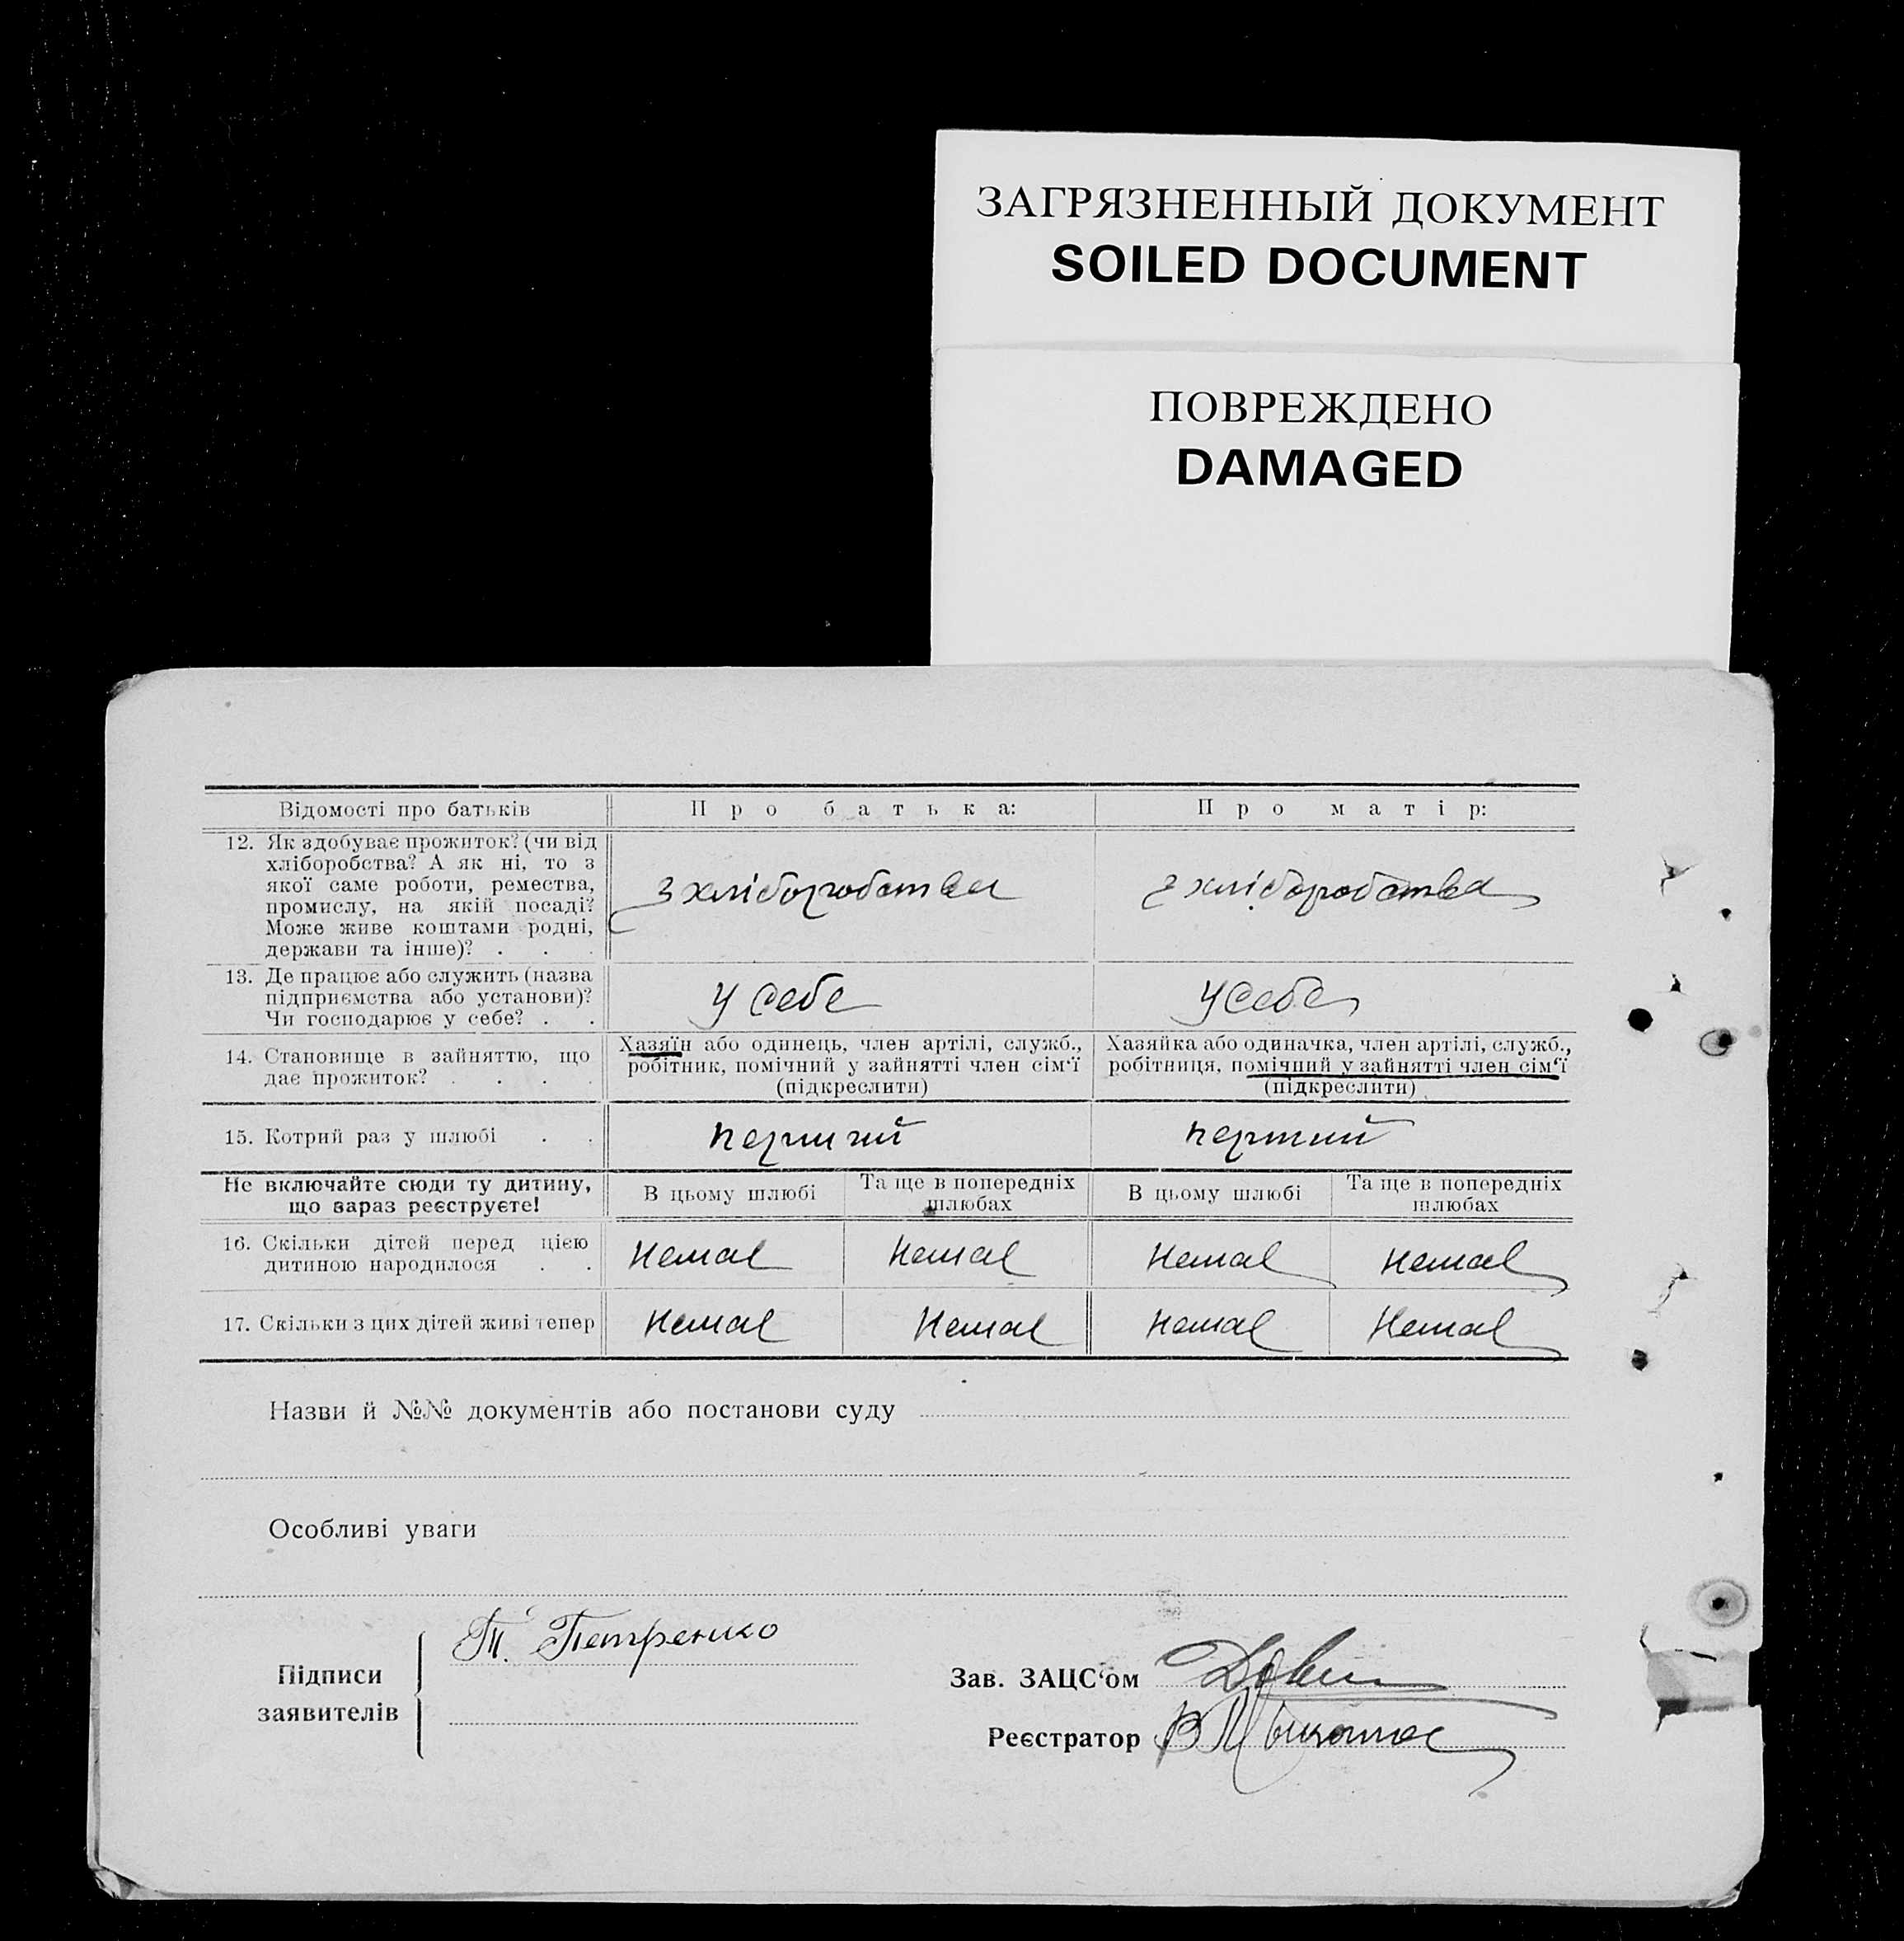 ЗАГРЯЗНЕННЫЙ ДОКУМЕНТ
SOILED DOCUMENT
ПОВРЕЖДЕНО
DAMAGED
Відомості про батьків
Про батька:
Про матір:
12. Як здобуває прожиток? (чи від
хліборобства? А як ні, то з
якої саме роботи, ремества,
промислу, на якій посаді?
Може живе коштами родні,
держави та інше)? . . .
з хліборобства
з хліборобства
13. Де працює або служить (назва
підприємства або установи)?
Чи господарює у себе? . .
у себе
у себе
14. Становище в зайняттю, що
дає прожиток? . . . .
Хазяїн або одинець, член артілі, служб.,
робітник, помічний у зайнятті член сім'ї
(підкреслити)
Хазяйка або одиначка, член артілі, служб.,
робітниця, помічний у зайнятті член сім'ї
(підкреслити)
15. Котрий раз у шлюбі . .
перший
перший
Не включайте сюди ту дитину,
що зараз реєструєте!
В цьому шлюбі
Та ще в попередніх
шлюбах
В цьому шлюбі
Та ще в попередніх
шлюбах
16. Скільки дітей перед цією
дитиною народилося . .
Немає
Немає
Немає
Немає
17. Скільки з цих дітей живі тепер
Немає
Немає
Немає
Немає
Назви й №№ документів або постанови суду
Особливі уваги
Підписи
заявителів
Т. Петренко
Зав. ЗАЦС'ом
Реєстратор